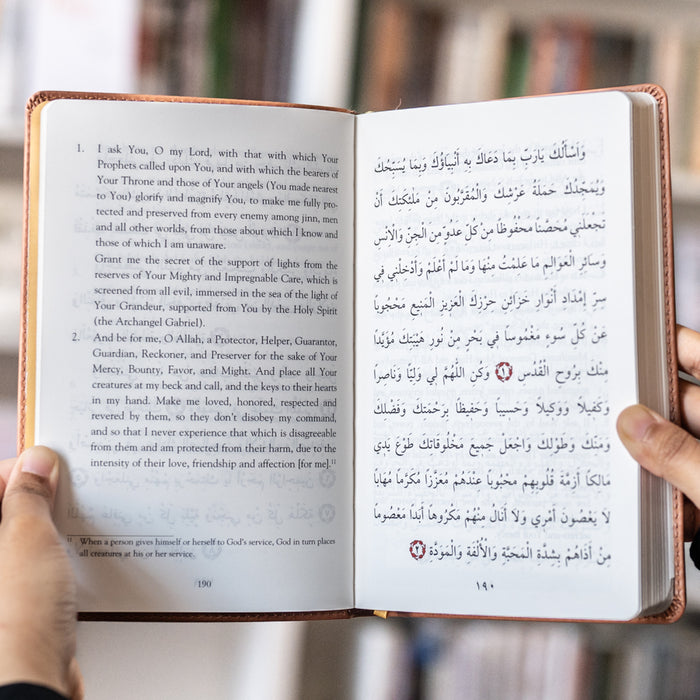 1. I ask You, O my Lord, with that with which Your
Prophets called upon You, and with which the bearers of
Your Throne and those of Your angels (You made nearest
to You) glorify and magnify You, to make me fully pro-
tected and preserved from every enemy among jinn, men
and all other worlds, from those about which I know and
those of which I am unaware.
Grant me the secret of the support of lights from the
reserves of Your Mighty and Impregnable Care, which is
screened from all evil, immersed in the sea of the light of
Your Grandeur, supported from You by the Holy Spirit
(the Archangel Gabriel).
2. And be for me, O Allah, a Protector, Helper, Guarantor,
Guardian, Reckoner, and Preserver for the sake of Your
Mercy, Bounty, Favor, and Might. And place all Your
creatures at my beck and call, and the keys to their hearts
in my hand. Make me loved, honored, respected and
revered by them, so they don't disobey my command,
and so that I never experience that which is disagreeable
from them and am protected from their harm, due to the
intensity of their love, friendship and affection [for me].¹¹
11 When a person gives himself or herself to God's service, God in turn places
all creatures at his or her service.
190
وَأَسْأَلُكَ يَارَبِّ بِمَا دَعَاكَ بِهِ أَنْبِيَاؤُكَ وَبِمَا يُسَبِّحُكَ
وَيُمَجِّدُكَ حَمَلَةُ عَرْشِكَ وَالْمُقَرَّبُونَ مِنْ مَلَئِكَتِكَ أَنْ
تَجْعَلَنِي مُحَصَّناً مَحْفُوظاً مِن كُلِّ عَدُوٍّ مِن الْجِنِّ وَالْاِنْسِ
وَسَائِرِ الْعَوَالِمِ مَا عَلِمْتُ مِنْهَا وَمَا لَمْ أَعْلَمْ وَأَدْخِلْنِي فِي
سِرِّ إِمْدَادِ أَنْوَارِ خَزَائِنِ حِرْزِكَ الْعَزِيزِ الْمَنِيعِ مَحْجُوباً
عَنْ كُلِّ سُوءٍ مَغْمُوساً فِي بَحْرٍ مِنْ نُورِ هَيْبَتِكَ مُؤَيَّداً
مِنْكَ بِرُوحِ الْقُدُسِ ١ وَكُنِ اللَّهُمَّ لِي وَلِيًّا وَنَاصِراً
وَكَفِيلاً وَوَكِيلاً وَحَسِيباً وَحَفِيظاً بِرَحْمَتِكَ وَفَضْلِكَ
وَمَنِّكَ وَطَوْلِكَ وَاجْعَلْ جَمِيعَ مَخْلُوقَاتِكَ طَوْعَ يَدِي
مَالِكاً أَزِمَّةَ قُلُوبِهِمْ مَحْبُوباً عِنْدَهُمْ مُعَزَّزاً مُكَرَّماً مُهَاباً
لاَ يَعْصُونَ أَمْرِي وَلاَ أَنَالُ مِنْهُمْ مَكْرُوهاً أَبَداً مَعْصُوماً
مِنْ أَذَاهُمْ بِشِدَّةِ الْمَحَبَّةِ وَالْأُلْفَةِ وَالْمَوَدَّةِ ٢
١٩٠